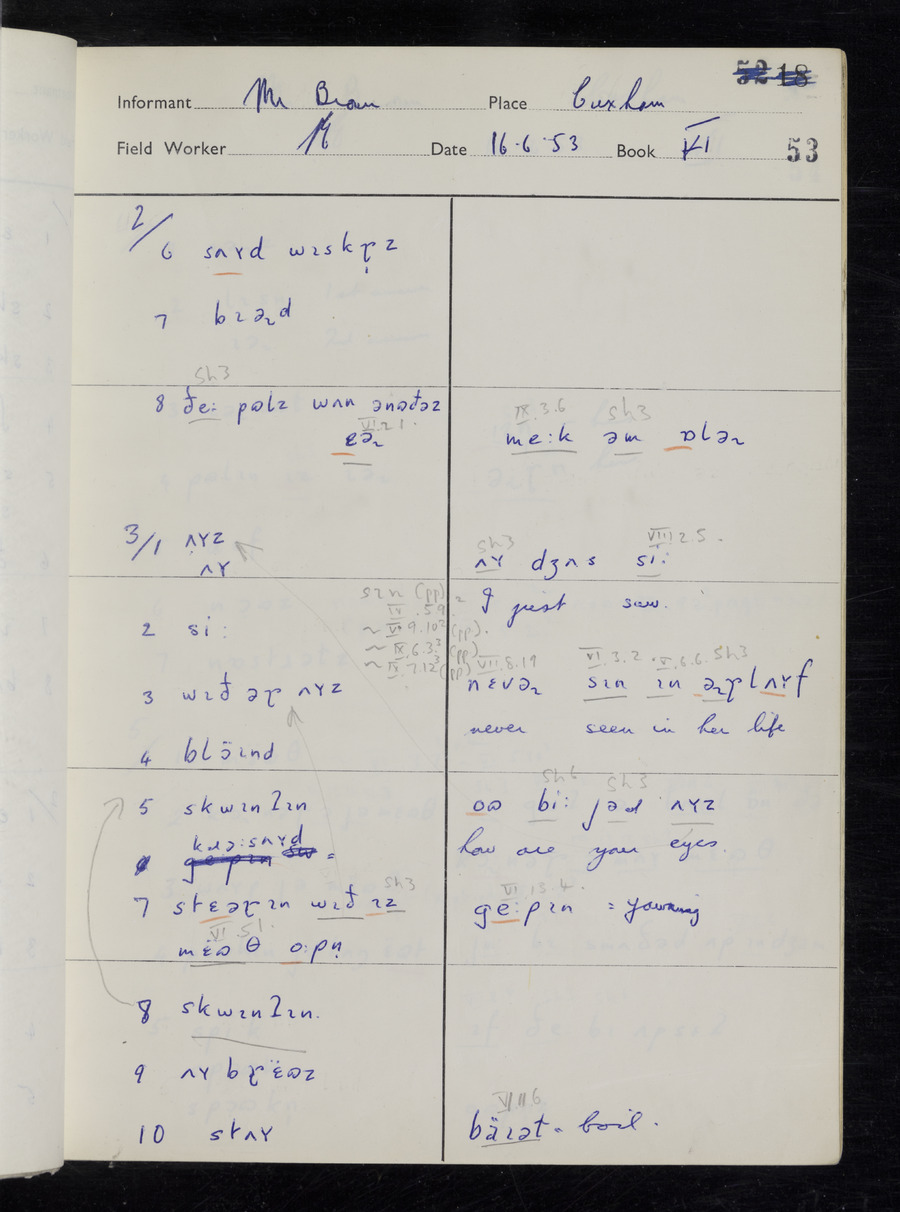 52 18
Informant Mr Brown Place Cuxham
Field Worker Date 16.6.53 Book VI 53
2/
6 sʌɤd wɪskɽz
7 bɪəɹd
Sh3
8 ðe: pɷlz wʌn ənɷðəz
VI.2.1.
ɛəɹ
IX.3.6 Sh3
me:k əm ɒləɹ
3/1 ʌɤz
ʌɤ
Sh3 VIII.2.5.
ʌɤ dʒʌs si:
I just saw.
2 si:
sɪn (pp)
IV.5.9
~ V.9.10 (pp).
~ IX.6.3 (pp)
~ IX.7.12 (pp)
3 wɪð əɽ ʌɤz
VII.8.19 VI.3.2 V.6.6. Sh3
nɛvəɹ sɪn ɪn əɹɽlʌɤf
never seen in her life
4 blɔ̈ɪnd
5 skwɪnʔɪn
Sh6 Sh3
bi: jəɹ ʌɤz
how are your eyes.
7 stɛəɽɪn wɪð ɪz
Sh3
VI.5.1.
mɛ̈ɷθ o:pn̩
VI.13.4.
ge:pɪn = yawning
8 skwɪnʔɪn.
9 ʌɤ bɽɛ̈ɷz
10 stʌɤ
VI.11.6
bäɪət = boil.